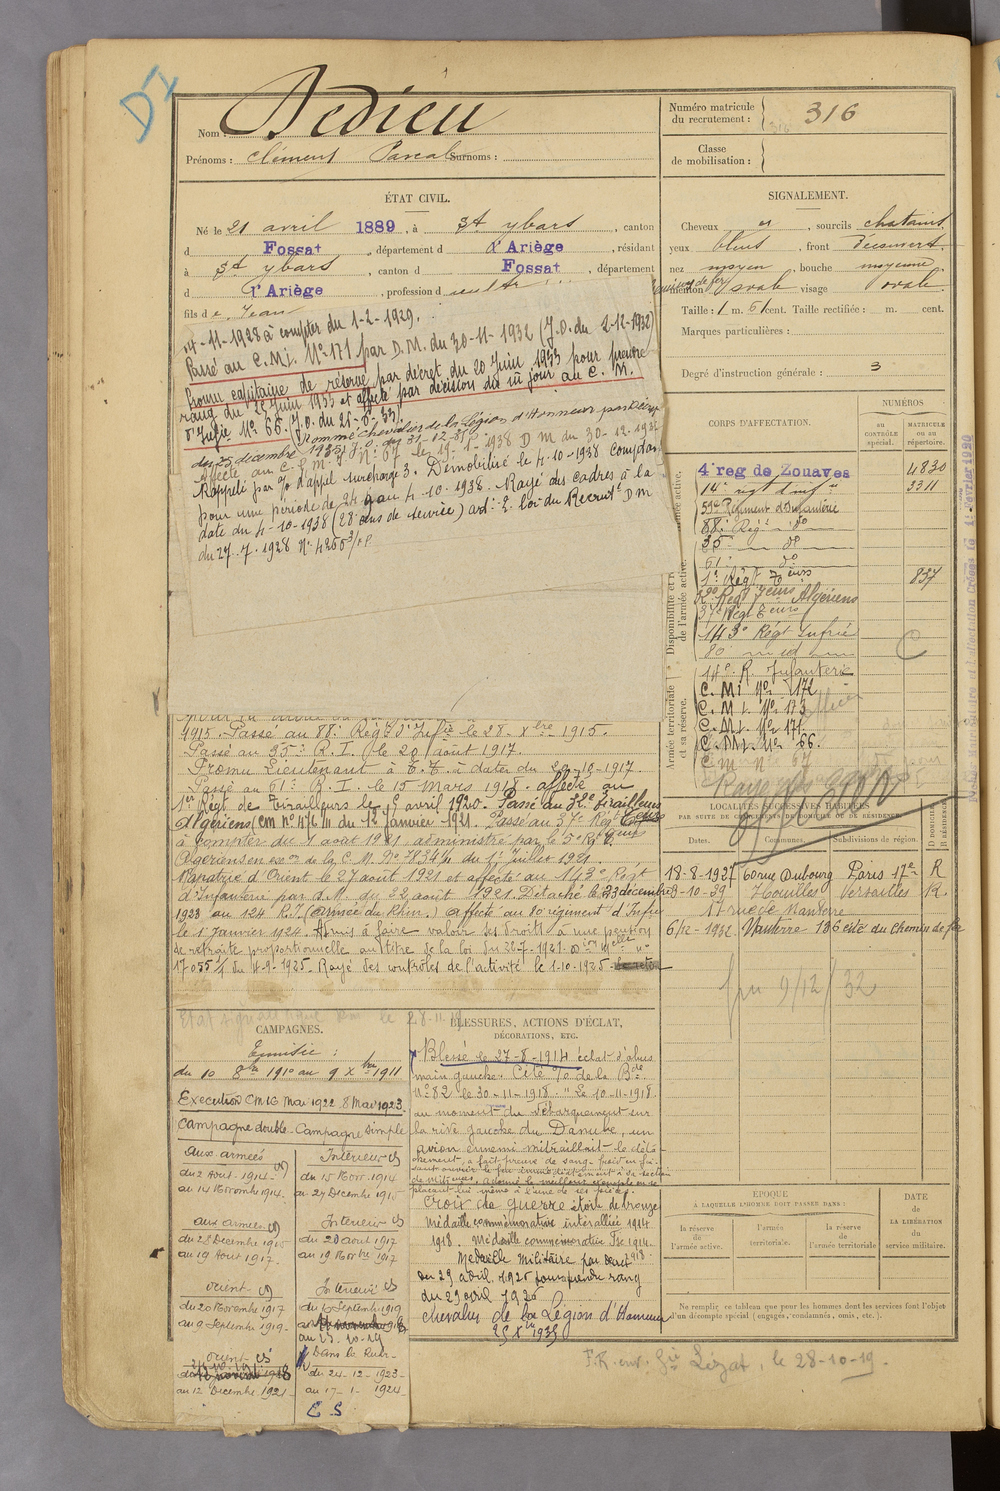 DI
Nom : Dedieu
Prénoms : Clément Pascal Surnoms :
Numéro matricule du recrutement : 316
Classe de mobilisation :
ÉTAT CIVIL.
Né le 21 avril 1889, à St ybars, canton
d Fossat, département d l'Ariège, résidant
à St ybars, canton d Fossat, département
d l'Ariège, profession d
fils de Jean
SIGNALEMENT.
Cheveux, sourcils chatains
yeux bleus, front découvert
nez moyen, bouche moyenne
menton ovale visage ovale
Taille : 1 m. 61 cent. Taille rectifiée : m. cent.
Marques particulières :
Degré d'instruction générale : 3
-11-1928 à compter du 1-2-1929.
Passé au C.M.I. No 171 par D.M. du 30-11-1932 (J.O. du 2-12-1932)
Promu capitaine de réserve par décret du 20 Juin 1933 pour prendre
rang du 25 Juin 1933 et affecté par décision du m jour au C. M.
d'Infie No 66 (J.O. du 25-6-33)
Nommé chevalier de la Légion d'Honneur par Décret
du 25 décembre 1935 J.O. du 31-12-35
Affecté au C.M.I. No 67 le 19-1-1938 D M du 30-12-1937
Rappelé par o/o d'appel surchargé 3. Démobilisé le 4-10-1938 comptant
pour une période de 24 9 au 4-10-1938. Rayé des cadres à la
date du 4-10-1938 (28 ans de service) art. 2 loi du Recrutt D M
du 27.7.1928 No 4260
CORPS D'AFFECTATION.
NUMÉROS
au CONTRÔLE spécial.
MATRICULE ou au répertoire.
4e reg de Zouaves 4830
14e regt d'infie 3311
59e Régiment d'Infanterie
88e Regt do
35 do
61 do
1er Régt Teurs 837
Regt Teurs Algériens
37e Regt Teurs
143e Régt Infrie
80 id
14e R. Infanterie
C. Mi No 172
C. M i. No 173
C. M.I. No 171
C. M.I. No 66.
C M No 67
Disponibilité et réserve de l'armée active.
Armée territoriale et sa réserve.
1915. Passé au 88e Régt d'Infie le 28 Xbre 1915.
Passé au 35e R. I. le 20 août 1917.
Promu Lieutenant à T.T. à dater du 20-10-1917.
Passé au 61e R. I. le 15 mars 1918. affecté au
1er Régt de Tirailleurs le 5 avril 1920. Passé au Tirailleurs
Algériens (cm no 476 III du 12 Janvier 1921. Passé au 37e Regt Teurs
à compter du 1 août 1921 administré par le 5e Rgt Teurs
Algériens en exon de la C. M. No 7839/4 du 1er Juillet 1921.
Rapatrié d'Orient le 27 août 1921 et affecté au 143e Regt
d'Infanterie par D.M. du 22 août 1921. Détaché le 23 décembre
1923 au 124 R.I. (armée du Rhin.) affecté au 80 régiment d'Infie
le 1er Janvier 1924. Admis à faire valoir ses droits à une pension
de retraite proportionnelle au titre de la loi du 30-7-1921.
17055/5 du 4-9-1925. Rayé des contrôles de l'activité le 1-10-1925.
LOCALITÉS SUCCESSIVES HABITÉES
PAR SUITE DE CHANGEMENTS DE DOMICILE OU DE RÉSIDENCE.
Dates. Communes. Subdivisions de région. D DOMICILE R RÉSIDENCE
18-8-1927 60 rue Dubourg Paris 17e R
3-10-29 Houilles Versailles R.
17 rue de Nanterre
6/12-1932 Nanterre 136 cité du Chemin de fer
9/12/32
Etat signalétique le 28-11
CAMPAGNES.
Tunisie :
du 10 8bre 1910 au 9 Xbre 1911
Exécution CM 16 Mai 1922. 8 Mai 1923.
Campagne double - Campagne Simple
Aux armées
du 2 Août 1914
au 14 Novembre 1914.
Intérieur CS
du 15 Novr 1914
au 27 Décembre 1915
aux armées
du 28 Décembre 1915
au 19 Août 1917.
Intérieur CS
du 20 août 1917
au 19 Novbre 1917
orient
du 20 Novembre 1917
au 9 Septembre 1919.
Intérieur CS
du 10 Septembre 1919
au 23-10-19
orient CS
24-10-19
au 12 Décembre 1921
Dans la Ruhr
du 24-12-1923
au 17-1-1924
C S
BLESSURES, ACTIONS D'ÉCLAT,
DÉCORATIONS, ETC.
Blessé le 27-8-1914 éclat d'obus
main gauche. Cité o/o de la Bde
No 82 le 30-11-1918. "Le 10-11-1918
au moment du débarquement sur
la rive gauche du Danube, un
avion ennemi mitraillant le déta-
chement, a fait preuve de sang-froid en fai-
sant ouvrir le feu immédiatement à sa section
de mitrses, a donné le meilleur exemple en se
plaçant lui même à l'une de ses pièces.
Croix de guerre étoile de bronze
Médaille commémorative interalliée 1914
1918. Médaille commémorative Fse 1914-
1918.
Médaille Militaire par décret
du 29 avril 1926 pour prendre rang
du 29 avril 1926
Chevalier de la Légion d'Honneur
25 Xbre 1935
ÉPOQUE
À LAQUELLE L'HOMME DOIT PASSER DANS :
la réserve de l'armée active.
l'armée territoriale.
la réserve de l'armée territoriale
DATE
de
LA LIBÉRATION
du
service militaire.
Ne remplir ce tableau que pour les hommes dont les services font l'objet
d'un décompte spécial (engagés, condamnés, omis, etc.).
F.R. env. Gie Lézat, le 28-10-19.